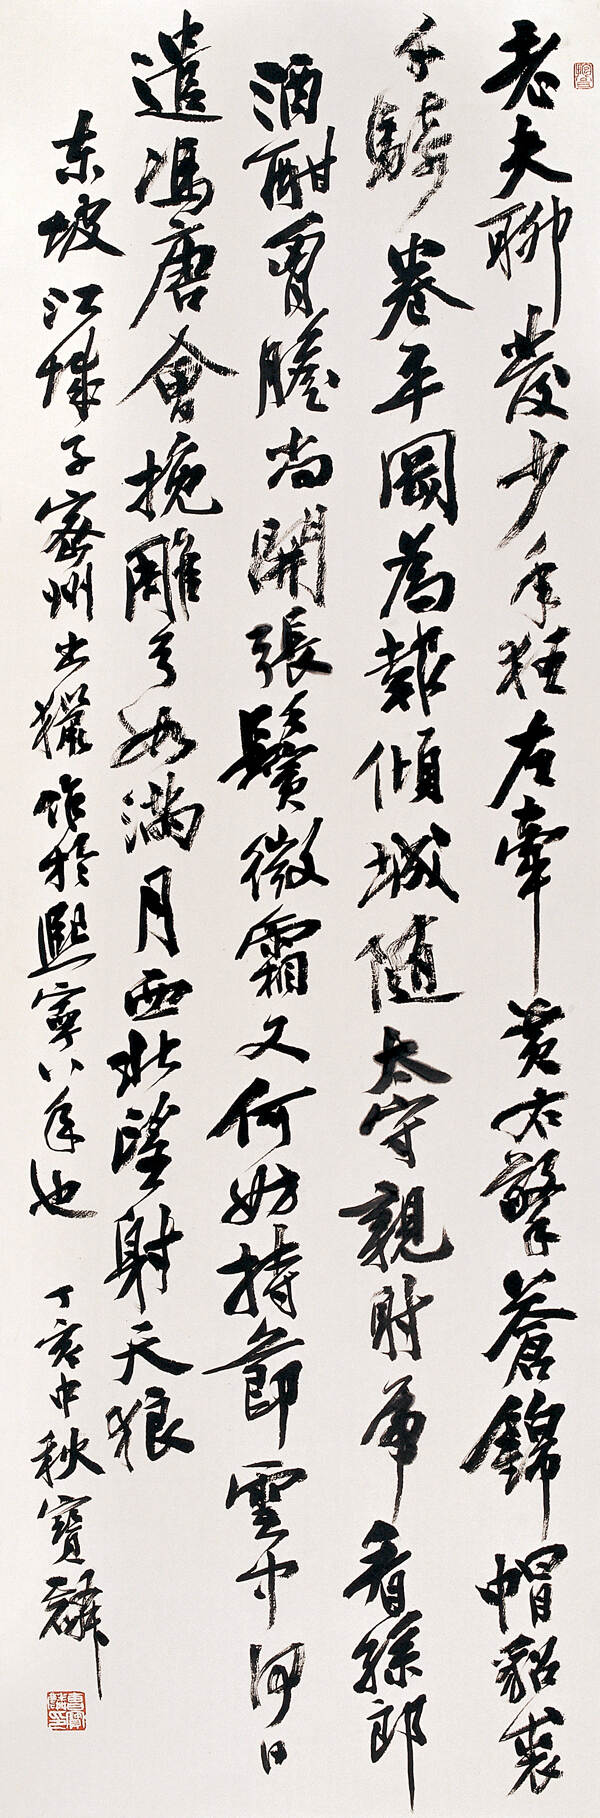 老夫聊發少年狂左牽黄右擎蒼錦帽貂裘
千騎卷平岡為報傾城隨太守親射虎看孫郎
酒酣胷膽尚開張鬢微霜又何妨持節雲中何日
遣馮唐會挽雕弓如滿月西北望射天狼
东坡江城子密州出獵作於熙寧八年也 丁亥中秋寶麟